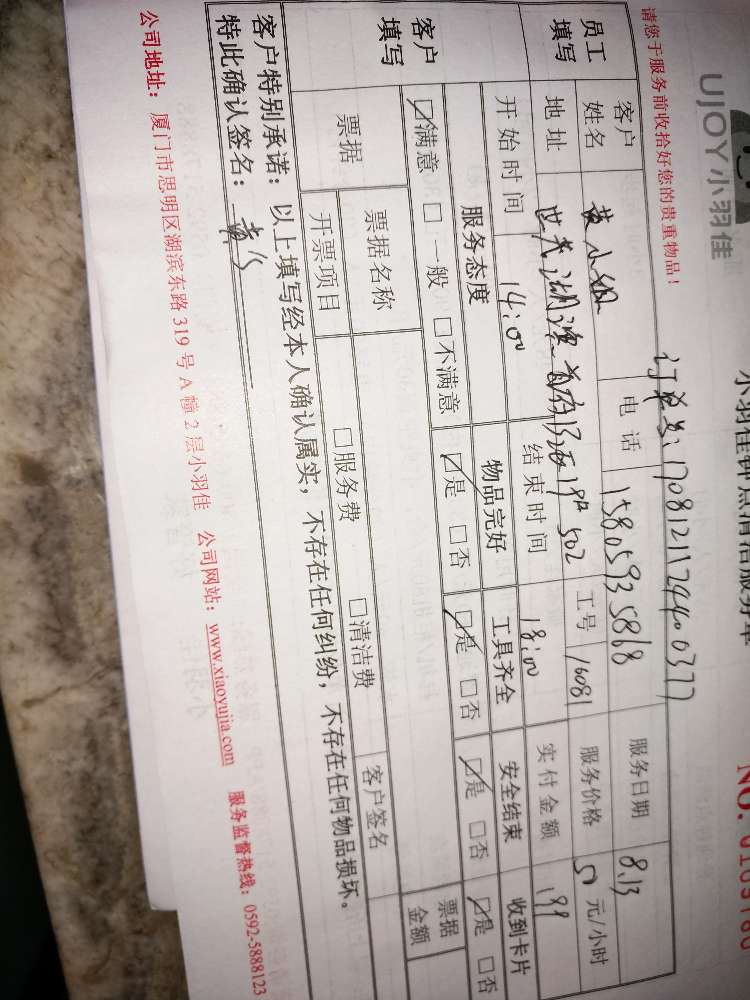 UJOY小羽佳
小羽佳钟点清洁服务单
请您于服务前收拾好您的贵重物品！
订单号：17081211294400377
员工填写
客户姓名 黄小姐 电话 15805935868 服务日期 8.13
地址 世茂湖滨首府 502 工号 16081 服务价格 50 元/小时
开始时间 14:00 结束时间 18:00 实付金额 199
客户填写
服务态度 物品完好 工具齐全 安全结束 收到卡片
☑满意 □一般 □不满意 ☑是 □否 ☑是 □否 ☑是 □否 ☑是 □否
票据 票据名称 客户签名 票据金额
开票项目 □服务费 □清洁费
客户特别承诺：以上填写经本人确认属实，不存在任何纠纷，不存在任何物品损坏。
特此确认签名：
公司地址：厦门市思明区湖滨东路 319 号 A 幢 2 层小羽佳 公司网站：www.xiaoyujia.com 服务监督热线：0592-5888123